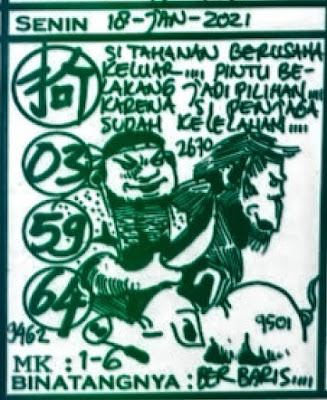 SENIN 18-JAN-2021
SI TAHANAN BERUSAHA
KELUAR.... PINTU BE-
LAKANG JADI PILIHAN...
KARENA SI PENJAGA
SUDAH KELELAHAN....
03
2670
59
64
9462
9501
MK : 1-6
BINATANGNYA : BERBARIS....